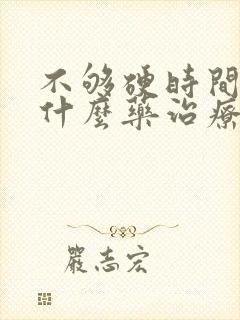 不够硬時間
什麼藥治療
嚴志宏